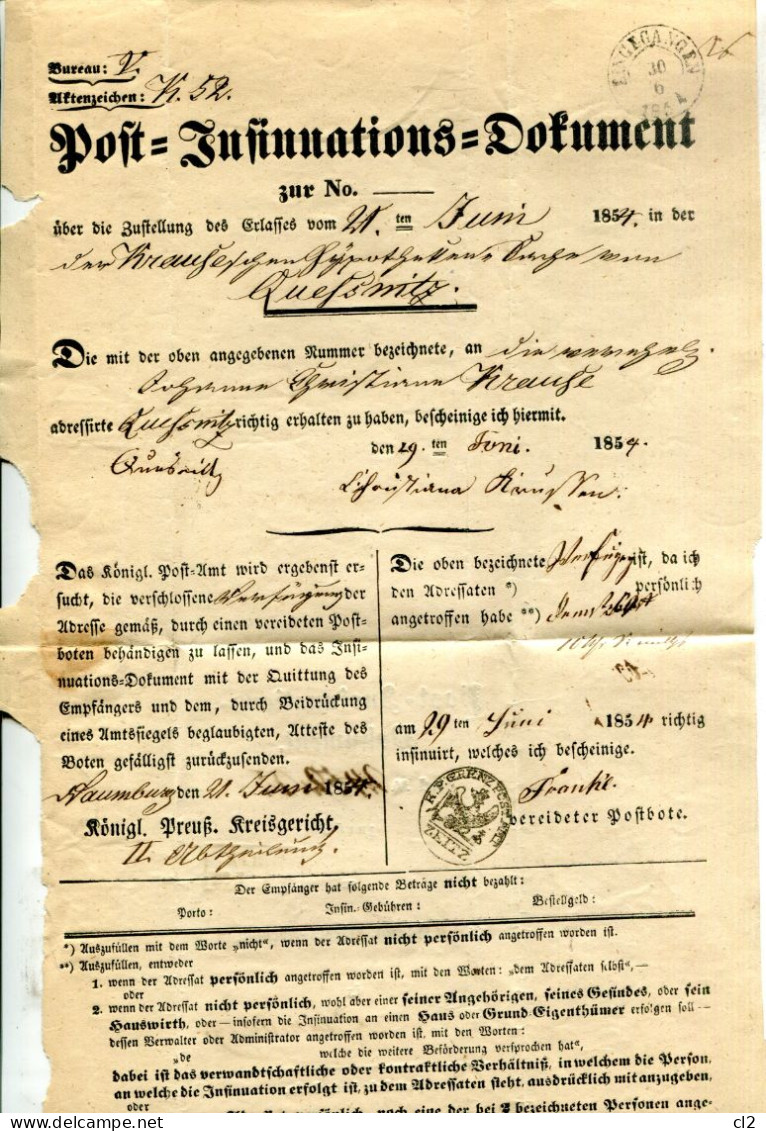 Bureau: V.
Aktenzeichen: K. 52.
EINGEGANGEN
30
6
Post=Insinuations=Dokument
zur No.
über die Zustellung des Erlasses vom 21. ten Juni 1854. in der
der Krauseschen Hypotheken Sache von
Quessnitz.
Die mit der oben angegebenen Nummer bezeichnete, an die verehel.
Johanne Christiane Krause
adressirte Quessnitz richtig erhalten zu haben, bescheinige ich hiermit.
den 29. ten Juni. 1854.
Christiana
Das Königl. Post=Amt wird ergebenst er=
sucht, die verschlossene Verfügung der
Adresse gemäß, durch einen vereideten Post=
boten behändigen zu lassen, und das Insi=
nuations=Dokument mit der Quittung des
Empfängers und dem, durch Beidrückung
eines Amtssiegels beglaubigten, Atteste des
Boten gefälligst zurückzusenden.
Naumburg den 21. Juni 1854.
Königl. Preuß. Kreisgericht
II. Abtheilung.
Die oben bezeichnete Verfügung ist, da ich
den Adressaten *) persönlich
angetroffen habe **)
am 29 ten Juni 1854 richtig
insinuirt, welches ich bescheinige.
Franke.
vereideter Postbote.
ZEITZ
Der Empfänger hat folgende Beträge nicht bezahlt:
Porto: Insin.=Gebühren: Bestellgeld:
*) Auszufüllen mit dem Worte „nicht“, wenn der Adressat nicht persönlich angetroffen worden ist.
**) Auszufüllen, entweder
1. wenn der Adressat persönlich angetroffen worden ist, mit den Worten: „dem Adressaten selbst“,—
oder
2. wenn der Adressat nicht persönlich, wohl aber einer seiner Angehörigen, seines Gesindes, oder sein
Hauswirth, oder — insofern die Insinuation an einen Haus oder Grund=Eigenthümer erfolgen soll —
dessen Verwalter oder Administrator angetroffen worden ist, mit den Worten:
„de welche die weitere Beförderung versprochen hat“,
dabei ist das verwandtschaftliche oder kontraktliche Verhältniß, in welchem die Person,
an welche die Insinuation erfolgt ist, zu dem Adressaten steht, ausdrücklich mit anzugeben,
oder
noch eine der bei 2 bezeichneten Personen ange=
cl2